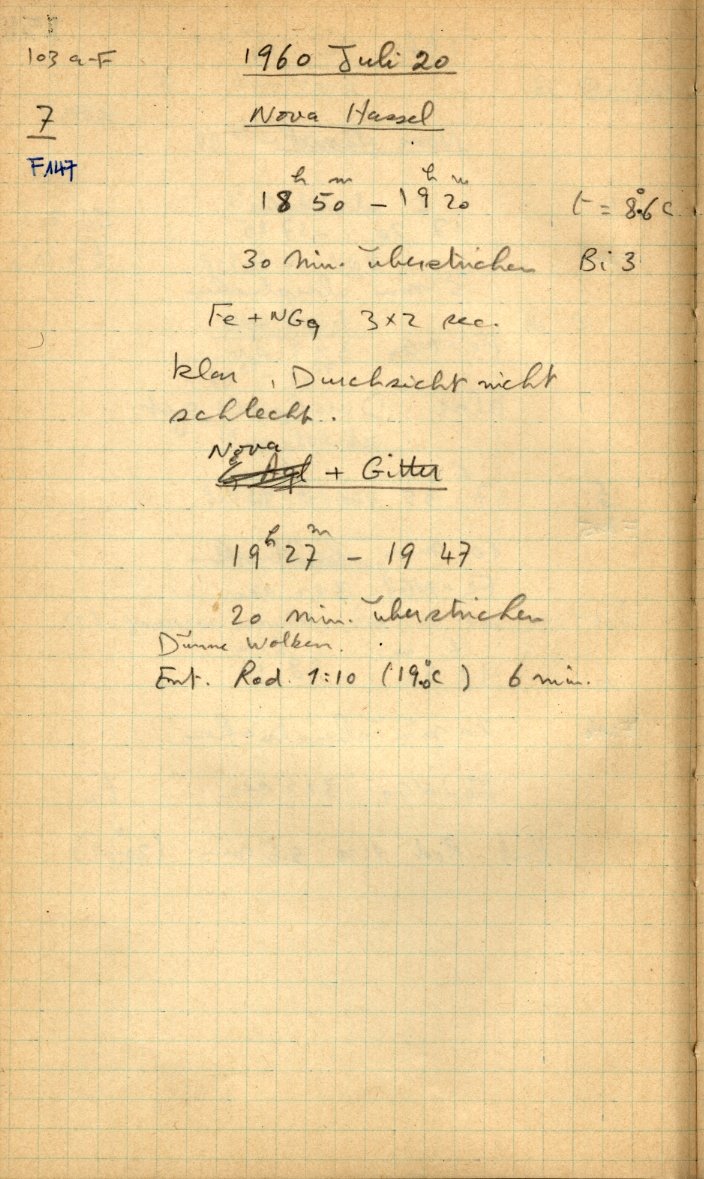 103 a-F
1960 Juli 20
7
Nova Hassel
F147
18h 50m – 19h 20m t = 8.°6 C
30 Min. überstrichen Bi 3
Fe + NGg 3×2 sec.
klar, Durchsicht nicht
schlecht.
Nova
+ Gitter
19h 27m – 19 47
20 min. überstrichen
Dünne Wolken.
Ent. Rod. 1:10 (19.°0 C) 6 min.